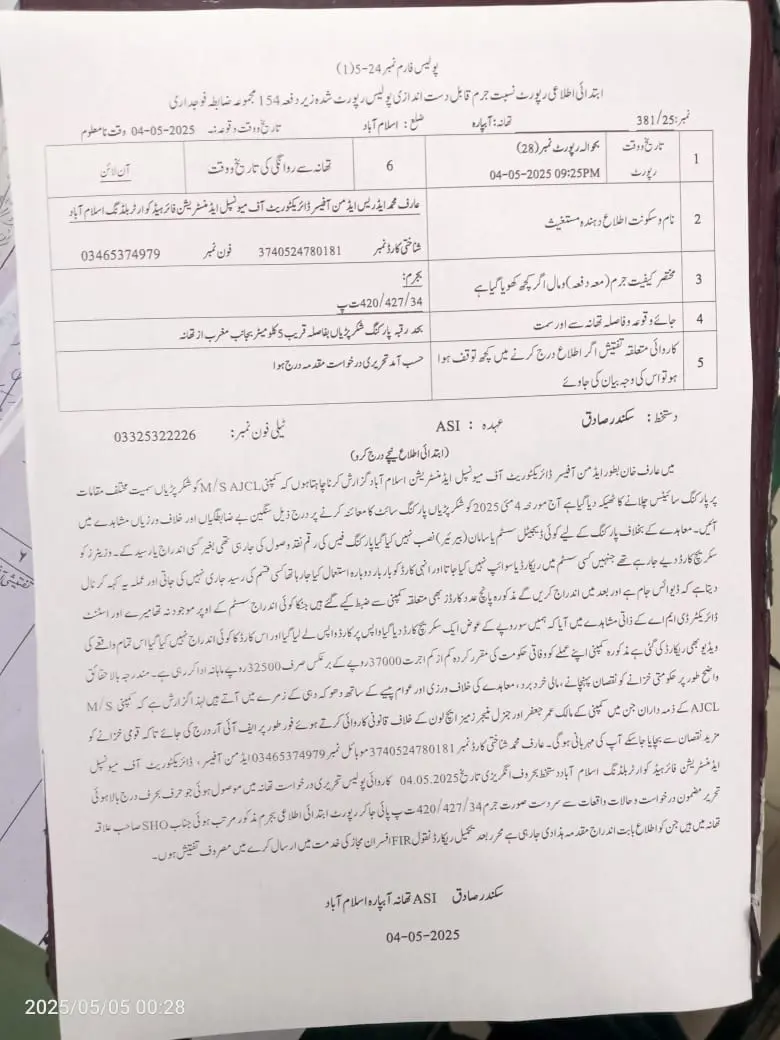 پولیس فارم نمبر 24-5(1)
ابتدائی اطلاعی رپورٹ نسبت جرم قابل دست اندازی پولیس رپورٹ شدہ زیر دفعہ 154 مجموعہ ضابطہ فوجداری
نمبر: 381/25 تھانہ: آبپارہ ضلع: اسلام آباد تاریخ و وقت وقوعہ 04-05-2025 وقت نامعلوم
1 تاریخ و وقت رپورٹ بحوالہ رپورٹ نمبر (28) 04-05-2025 09:25PM 6 تھانہ سے روانگی کی تاریخ و وقت آن لائن
2 نام و سکونت اطلاع دہندہ مستغیث عارف محمد ایڈریس ایڈمن آفیسر ڈائریکٹوریٹ آف میونسپل ایڈمنسٹریشن فائر ہیڈ کوارٹر بلڈنگ اسلام آباد
شناختی کارڈ نمبر 3740524780181 فون نمبر 03465374979
3 مختصر کیفیت جرم (معہ دفعہ) و مال اگر کچھ کھویا گیا ہے بجرم:
420/427/34 ت پ
4 جائے وقوعہ و فاصلہ تھانہ سے اور سمت بحد رقبہ پارکنگ شکرپڑیاں بفاصلہ قریب 5 کلو میٹر بجانب مغرب از تھانہ
5 کاروائی متعلقہ تفتیش اگر اطلاع درج کرنے میں کچھ توقف ہوا ہو تو اس کی وجہ بیان کی جاوے حسب آمد تحریری درخواست مقدمہ درج ہوا
دستخط: سکندر صادق عہدہ: ASI ٹیلی فون نمبر: 03325322226
(ابتدائی اطلاع نیچے درج کرو)
میں عارف خان بطور ایڈمن آفیسر ڈائریکٹوریٹ آف میونسپل ایڈمنسٹریشن اسلام آباد گزارش کرنا چاہتا ہوں کہ کمپنی M/S AJCL کو شکرپڑیاں سمیت مختلف مقامات
پر پارکنگ سائیٹس چلانے کا ٹھیکہ دیا گیا ہے آج مورخہ 4 مئی 2025 کو شکرپڑیاں پارکنگ سائٹ کا معائنہ کرنے پر درج ذیل سنگین بے ضابطگیاں اور خلاف ورزیاں مشاہدے میں
آئیں۔ معاہدے کے بخلاف پارکنگ کے لیے کوئی ڈیجیٹل سسٹم یا سامان (بیرئیر) نصب نہیں کیا گیا پارکنگ فیس کی رقم نقد وصول کی جا رہی تھی بغیر کسی اندراج یا رسید کے۔ وزیٹرز کو
سکریچ کارڈ دیے جا رہے تھے جنہیں کسی سسٹم میں ریکارڈ یا سوائپ نہیں کیا جاتا اور انہی کارڈ کو بار بار دوبارہ استعمال کیا جا رہا تھا کسی قسم کی رسید جاری نہیں کی جاتی اور عملہ یہ کہہ کر نال
دیتا ہے کہ ڈیوائس جام ہے اور بعد میں اندراج کریں گے مذکورہ پانچ عدد کارڈز بھی متعلقہ کمپنی سے ضبط کیے گئے ہیں جنکا کوئی اندراج سسٹم کے اوپر موجود نہ تھا میرے اور اسٹنٹ
ڈائریکٹر ڈی ایم اے کے ذاتی مشاہدے میں آیا کہ ہمیں سو روپے کے عوض ایک سکریچ کارڈ دیا گیا واپس پر کارڈ واپس لے لیا گیا اور اس کارڈ کا کوئی اندراج نہیں کیا گیا اس تمام واقعے کی
ویڈیو بھی ریکارڈ کی گئی ہے مذکورہ کمپنی اپنے عملے کو وفاقی حکومت کی مقرر کردہ کم از کم اجرت 37000 روپے کے برعکس صرف 32500 روپے ماہانہ ادا کر رہی ہے۔ مندرجہ بالا حقائق
واضح طور پر حکومتی خزانے کو نقصان پہنچانے، مالی خرد برد، معاہدے کی خلاف ورزی اور عوام پیسے کے ساتھ دھوکہ دہی کے زمرے میں آتے ہیں لہذا گزارش ہے کہ کمپنی M/S
AJCL کے ذمہ داران جن میں کمپنی کے مالک عمر جعفر اور جنرل منیجر زمیز ایچ لون کے خلاف قانونی کاروائی کرتے ہوئے فور طور پر ایف آئی آر درج کی جائے تا کہ قومی خزانے کو
مزید نقصان سے بچایا جا سکے آپ کی مہربانی ہوگی۔ عارف محمد شناختی کارڈ نمبر 3740524780181 موبائل نمبر 03465374979 ایڈمن آفیسر، ڈائریکٹوریٹ آف میونسپل
ایڈمنسٹریشن فائر ہیڈ کوارٹر بلڈنگ اسلام آباد دستخط بحروف انگریزی تاریخ 04.05.2025 کاروائی پولیس تحریری درخواست تھانہ میں موصول ہوئی جو حرف بحرف درج بالا ہوئی
تحریر مضمون درخواست و حالات واقعات سے سردست صورت جرم 420/427/34 ت پ پائی جا کر رپورٹ ابتدائی اطلاعی بجرم مذکور مرتب ہوئی جناب SHO صاحب علاقہ
تھانہ میں ہیں جن کو اطلاع بابت اندراج مقدمہ ہذا دی جا رہی ہے محرر بعد تکمیل ریکارڈ نقول FIR افسران مجاز کی خدمت میں ارسال کرے میں مصروف تفتیش ہوں۔
سکندر صادق ASI تھانہ آبپارہ اسلام آباد
04-05-2025
2025/05/05 00:28